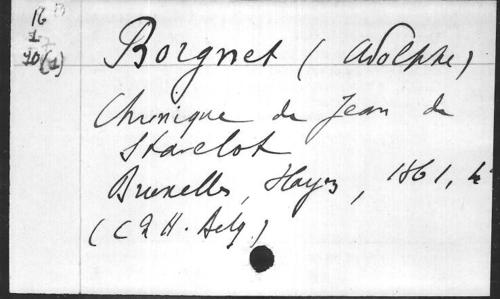 16
1
20(1)
Borgnet (Adolphe)
Chronique de Jean de
Stavelot
Bruxelles, Hayez, 1861, 4°
(C R H. Belg.)